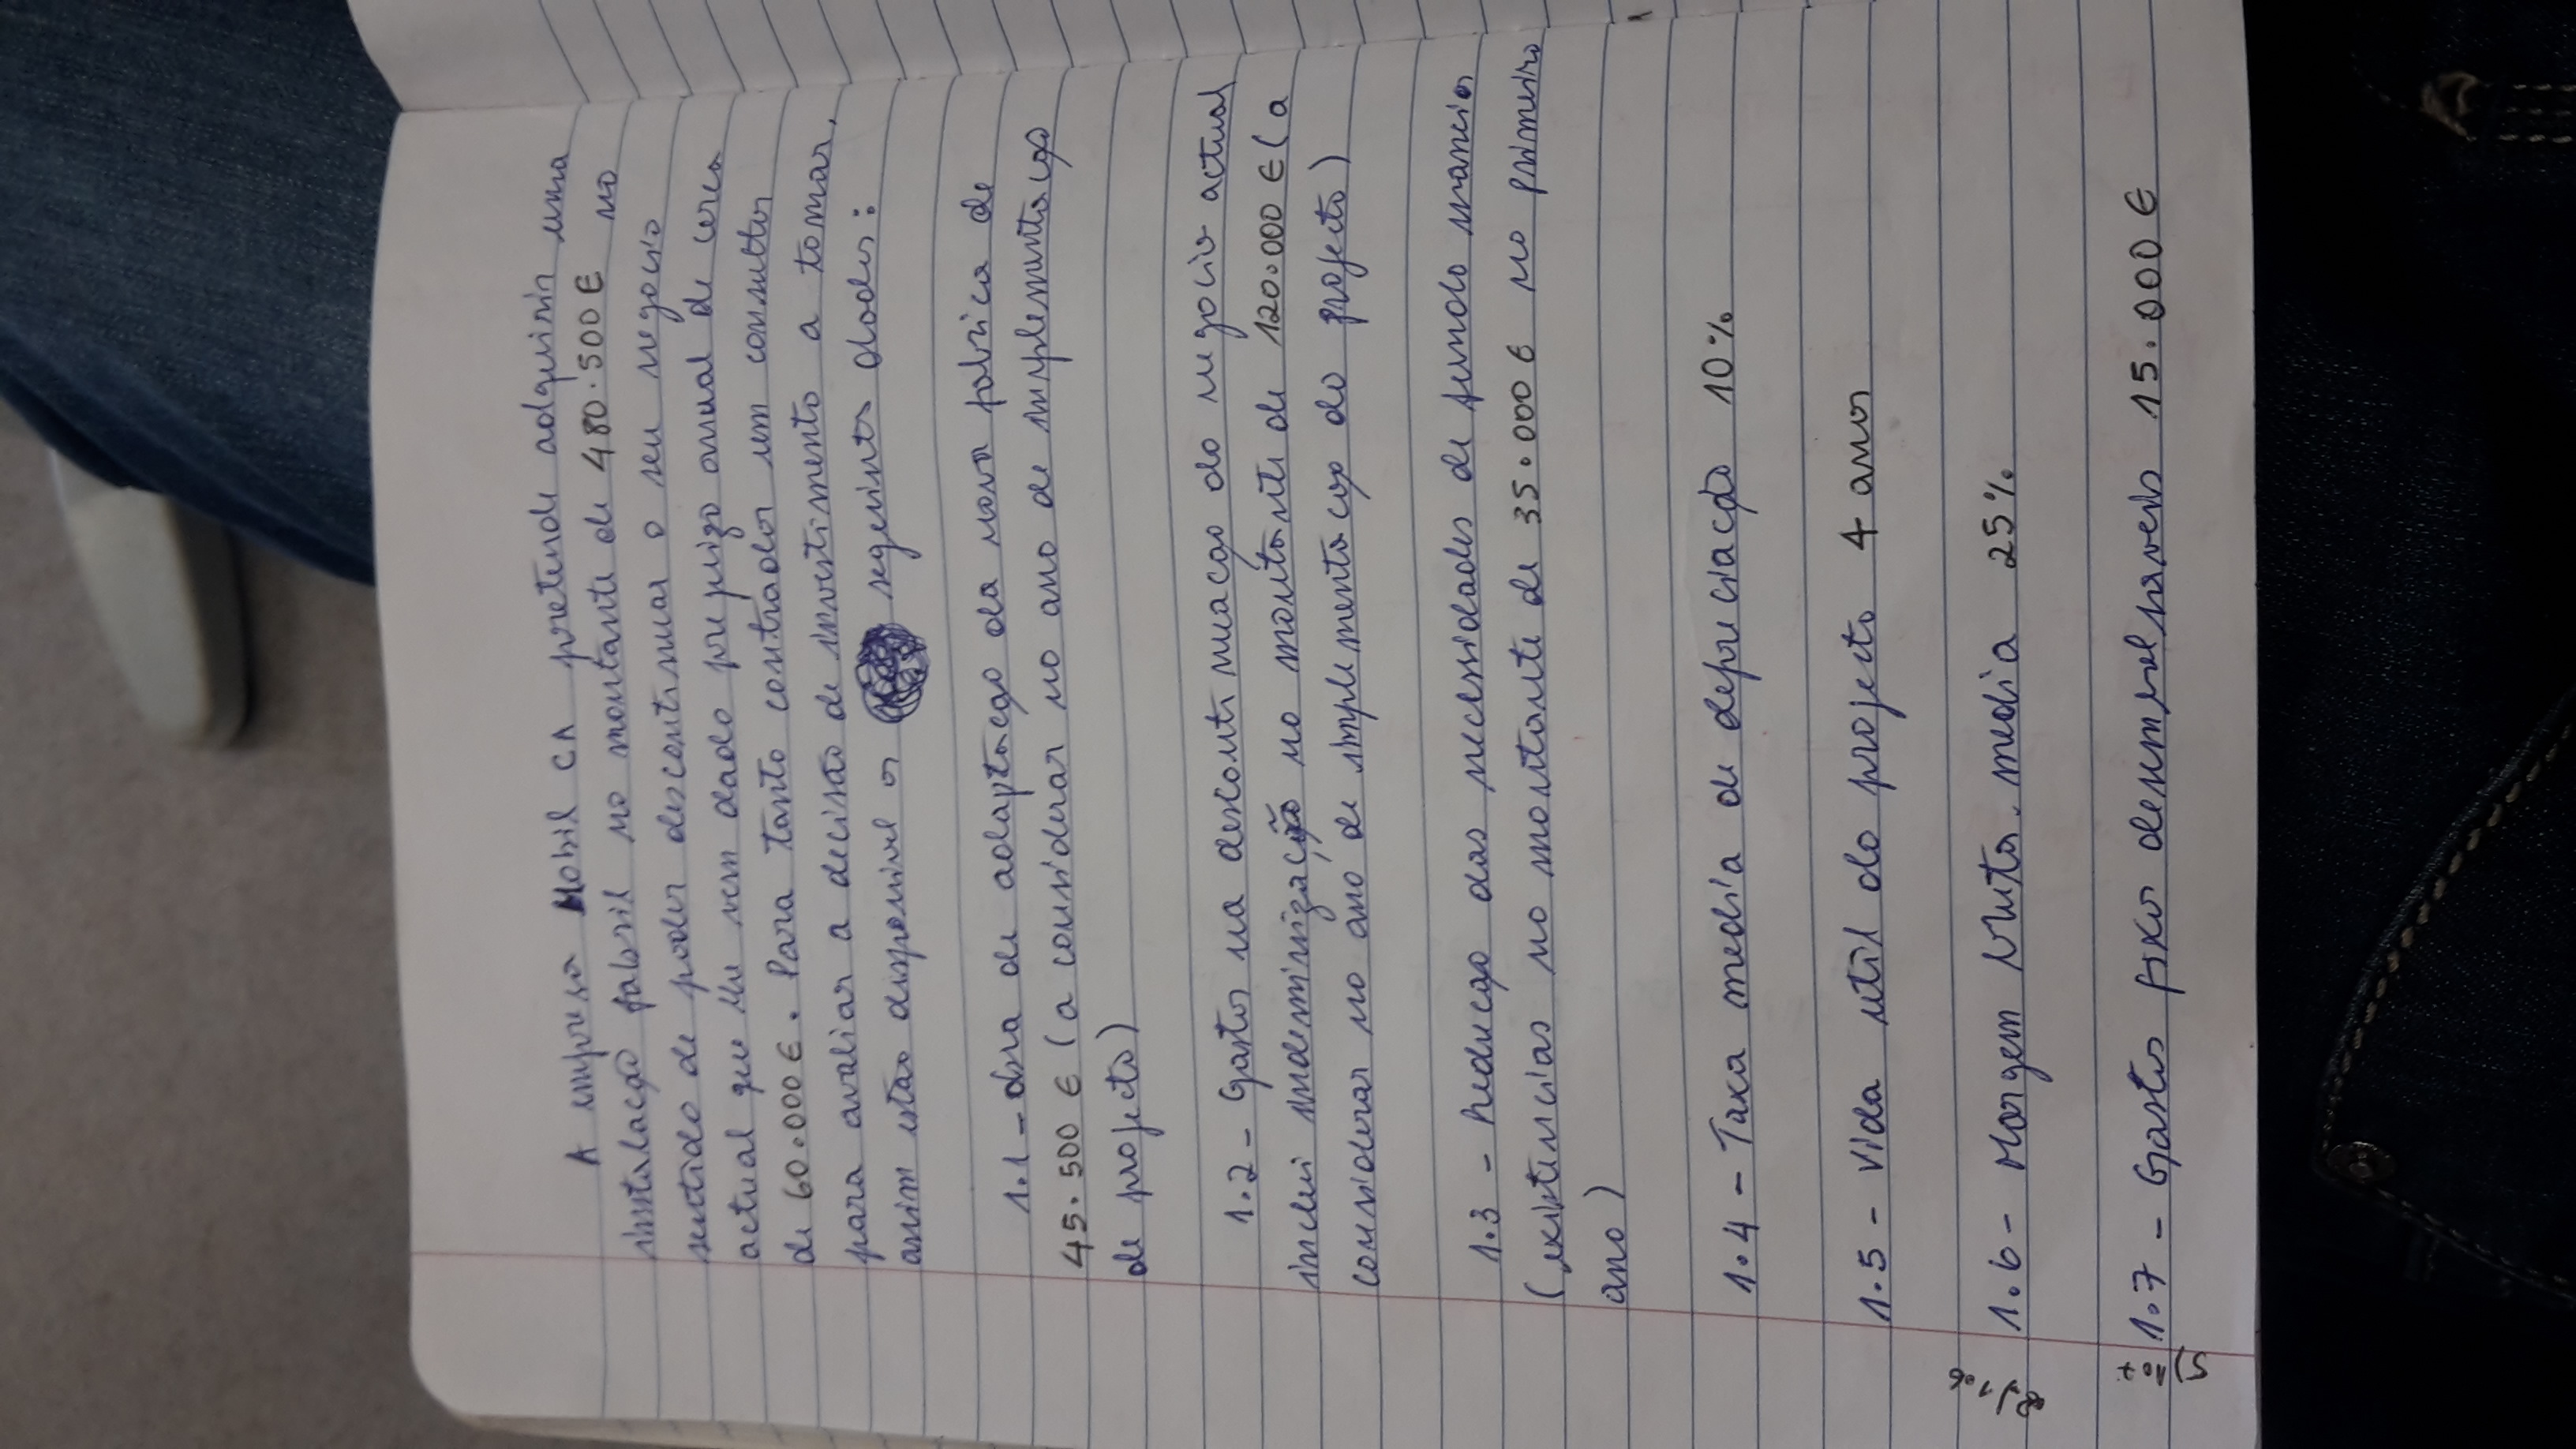 A empresa Mobil CA pretende adquirir uma
instalação fabril no montante de 480.500 € no
sentido de poder descontinuar o seu negocio
actual que lhe vem dado prejuizo anual de cerca
de 60.000 €. Para tanto contrador um consultor
para avaliar a decisão de investimento a tomar,
assim estão disponivel os seguintes dados:
1.1 - obra de adaptação da nova fabrica de
45.500 € (a considerar no ano de implementação
de projecto)
1.2 - Gastos na descontinuação do negocio actual
inclui indeminização no montante de 120.000 € (a
considerar no ano de implementação do projecto)
1.3 - Redução das necessidades de fundo maneio
(existencias no montante de 35.000 € no primeiro
ano)
1.4 - Taxa media de depreciação 10%
1.5 - Vida util do projecto 4 anos
1.6 - Margem bruta media 25%
1.7 - Gastos fixos 15.000 €
1.06
5) 1.07